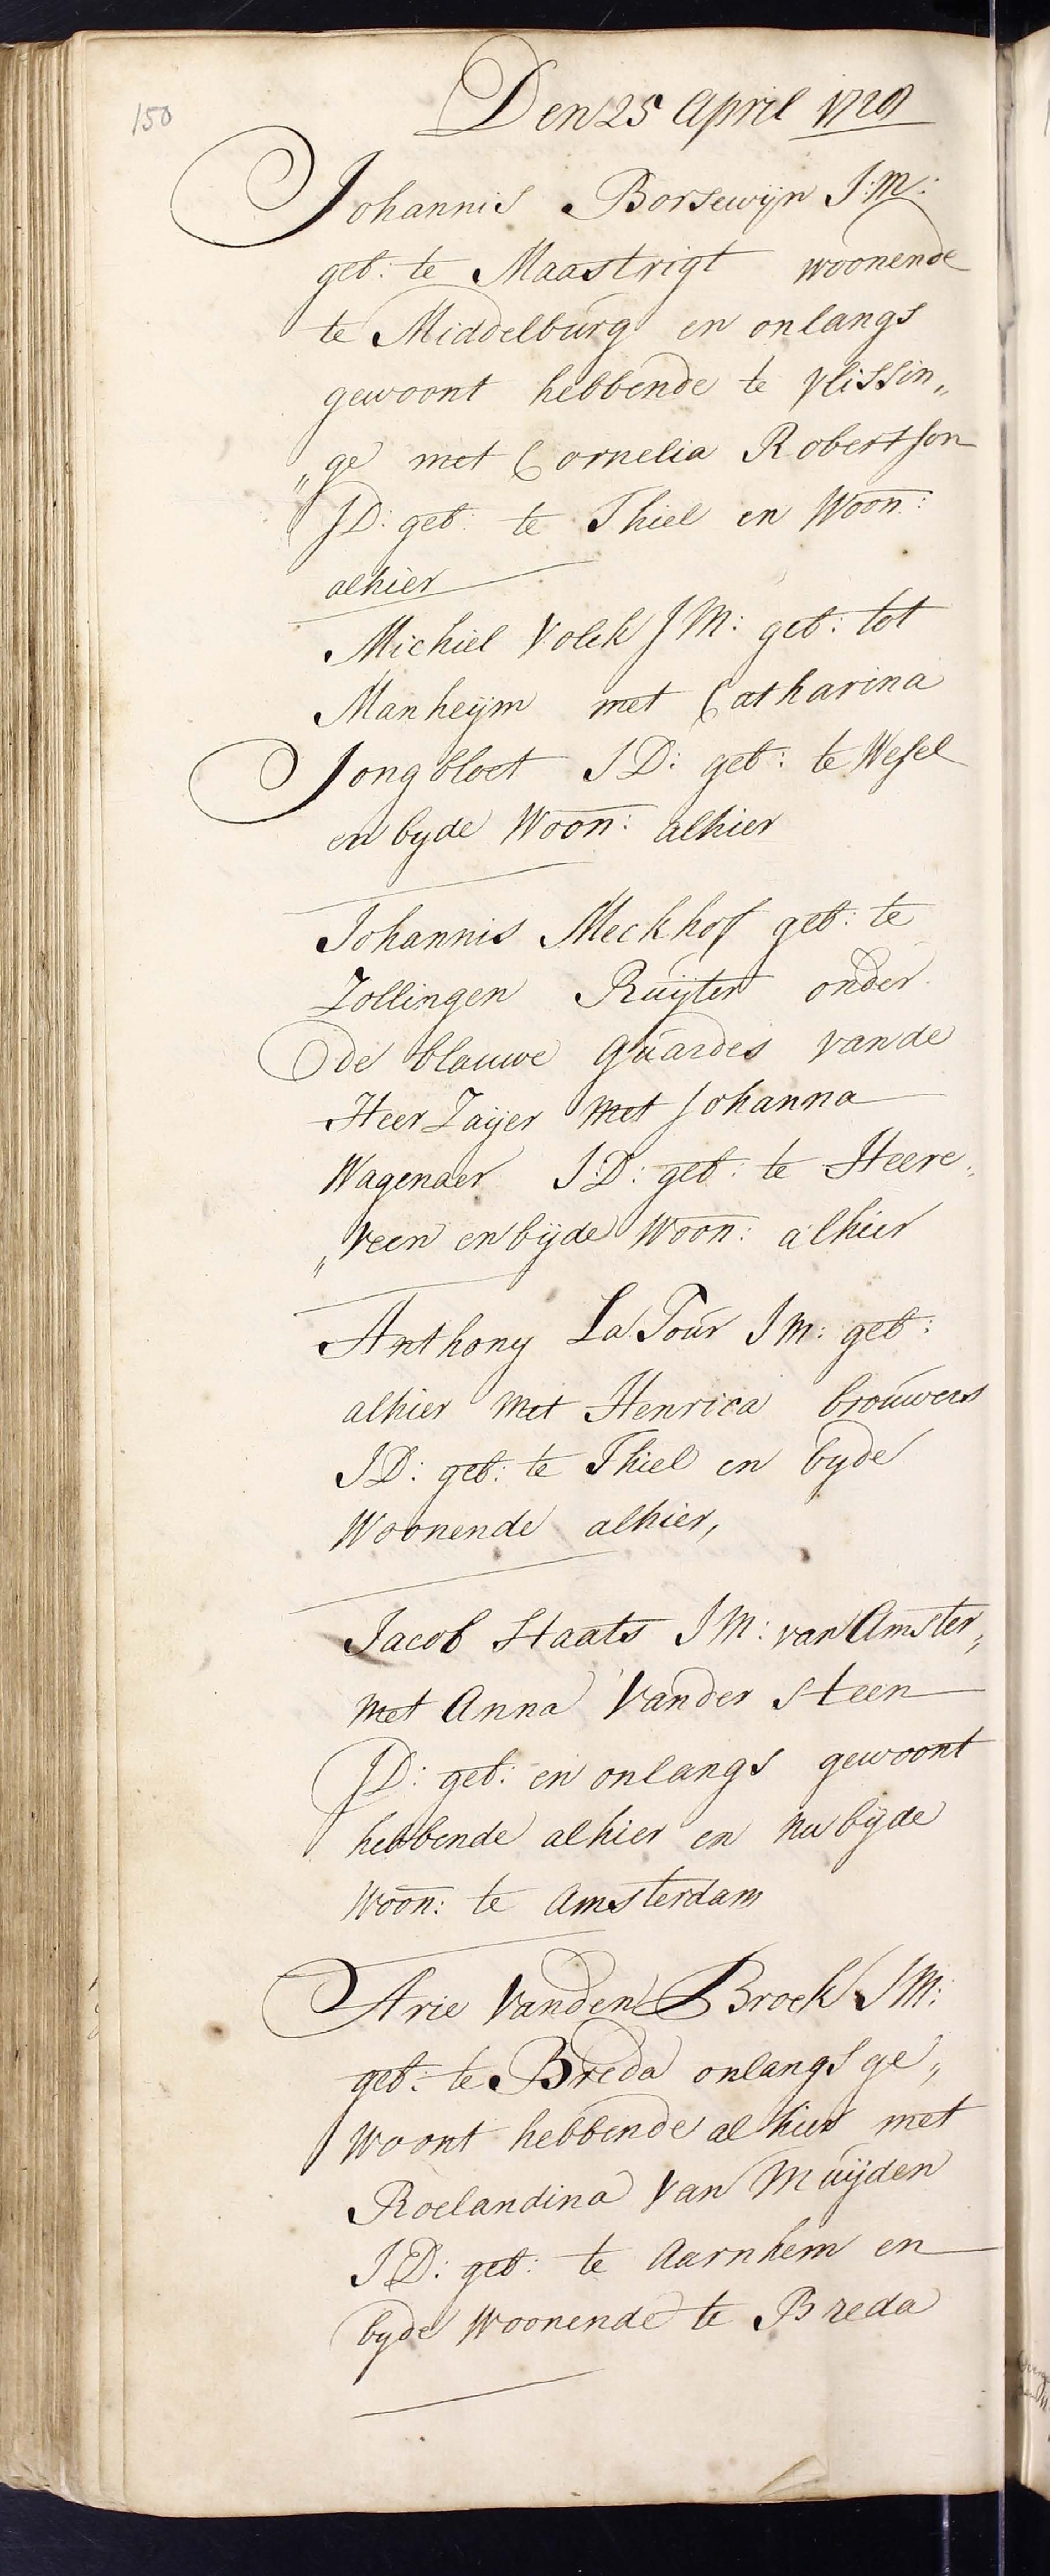 150
Den 25 April
Johannis Borsewijn J:M:
geb: te Maastrigt woonende
te Middelburg en onlangs
gewoont hebbende te vlissin„
„ge met Cornelia Robertson
JD: geb: te Thiel en Woon:
alhier
Michiel Volck JM: geb: tot
Manheijm met Catharina
Jongbloet JD: geb: te Wesel
en byde Woon: alhier
Johannis Meckhof geb: te
Zollingen Ruijter onder
de blauwe guardes vande
Heer Zaijer met Johanna
Wagenaer J:D: geb: te Heere„
„veen en bijde Woon: alhier
Anthony LaTour JM: geb:
alhier met Henrica brouwers
JD: geb: te Thiel en byde
Woonende alhier,
Jacob Staats JM: van Amster„
met Anna Vander Steen
JD: geb: en onlangs gewoont
hebbende alhier en nu bijde
Woon: te Amsterdam
Arie Vanden Broek JM:
geb: te Breda onlangs ge„
Woont hebbende alhier met
Roelandina Van Muijden
JD: geb: te Aarnhem en
byde Woonende te Breda